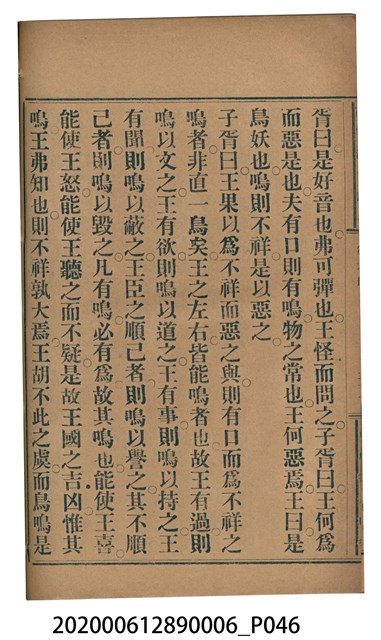 胥曰是好音也弗可彈也王怪而問之子胥曰王何爲
而惡是也夫有口則有鳴物之常也王何惡焉王曰是
鳥妖也鳴則不祥是以惡之
子胥曰王果以爲不祥而惡之與則有口而爲不祥之
鳴者非直一鳥矣王之左右皆能鳴者也故王有過則
鳴以文之王有欲則鳴以道之王有事則鳴以持之王
有聞則鳴以蔽之王臣之順己者則鳴以譽之其不順
己者則鳴以毀之凡有鳴必有爲故其鳴也能使王喜
能使王怒能使王聽之而不疑是故王國之吉凶惟其
鳴王弗知也則不祥孰大焉王胡不此之虞而鳥鳴是
202000612890006_P046